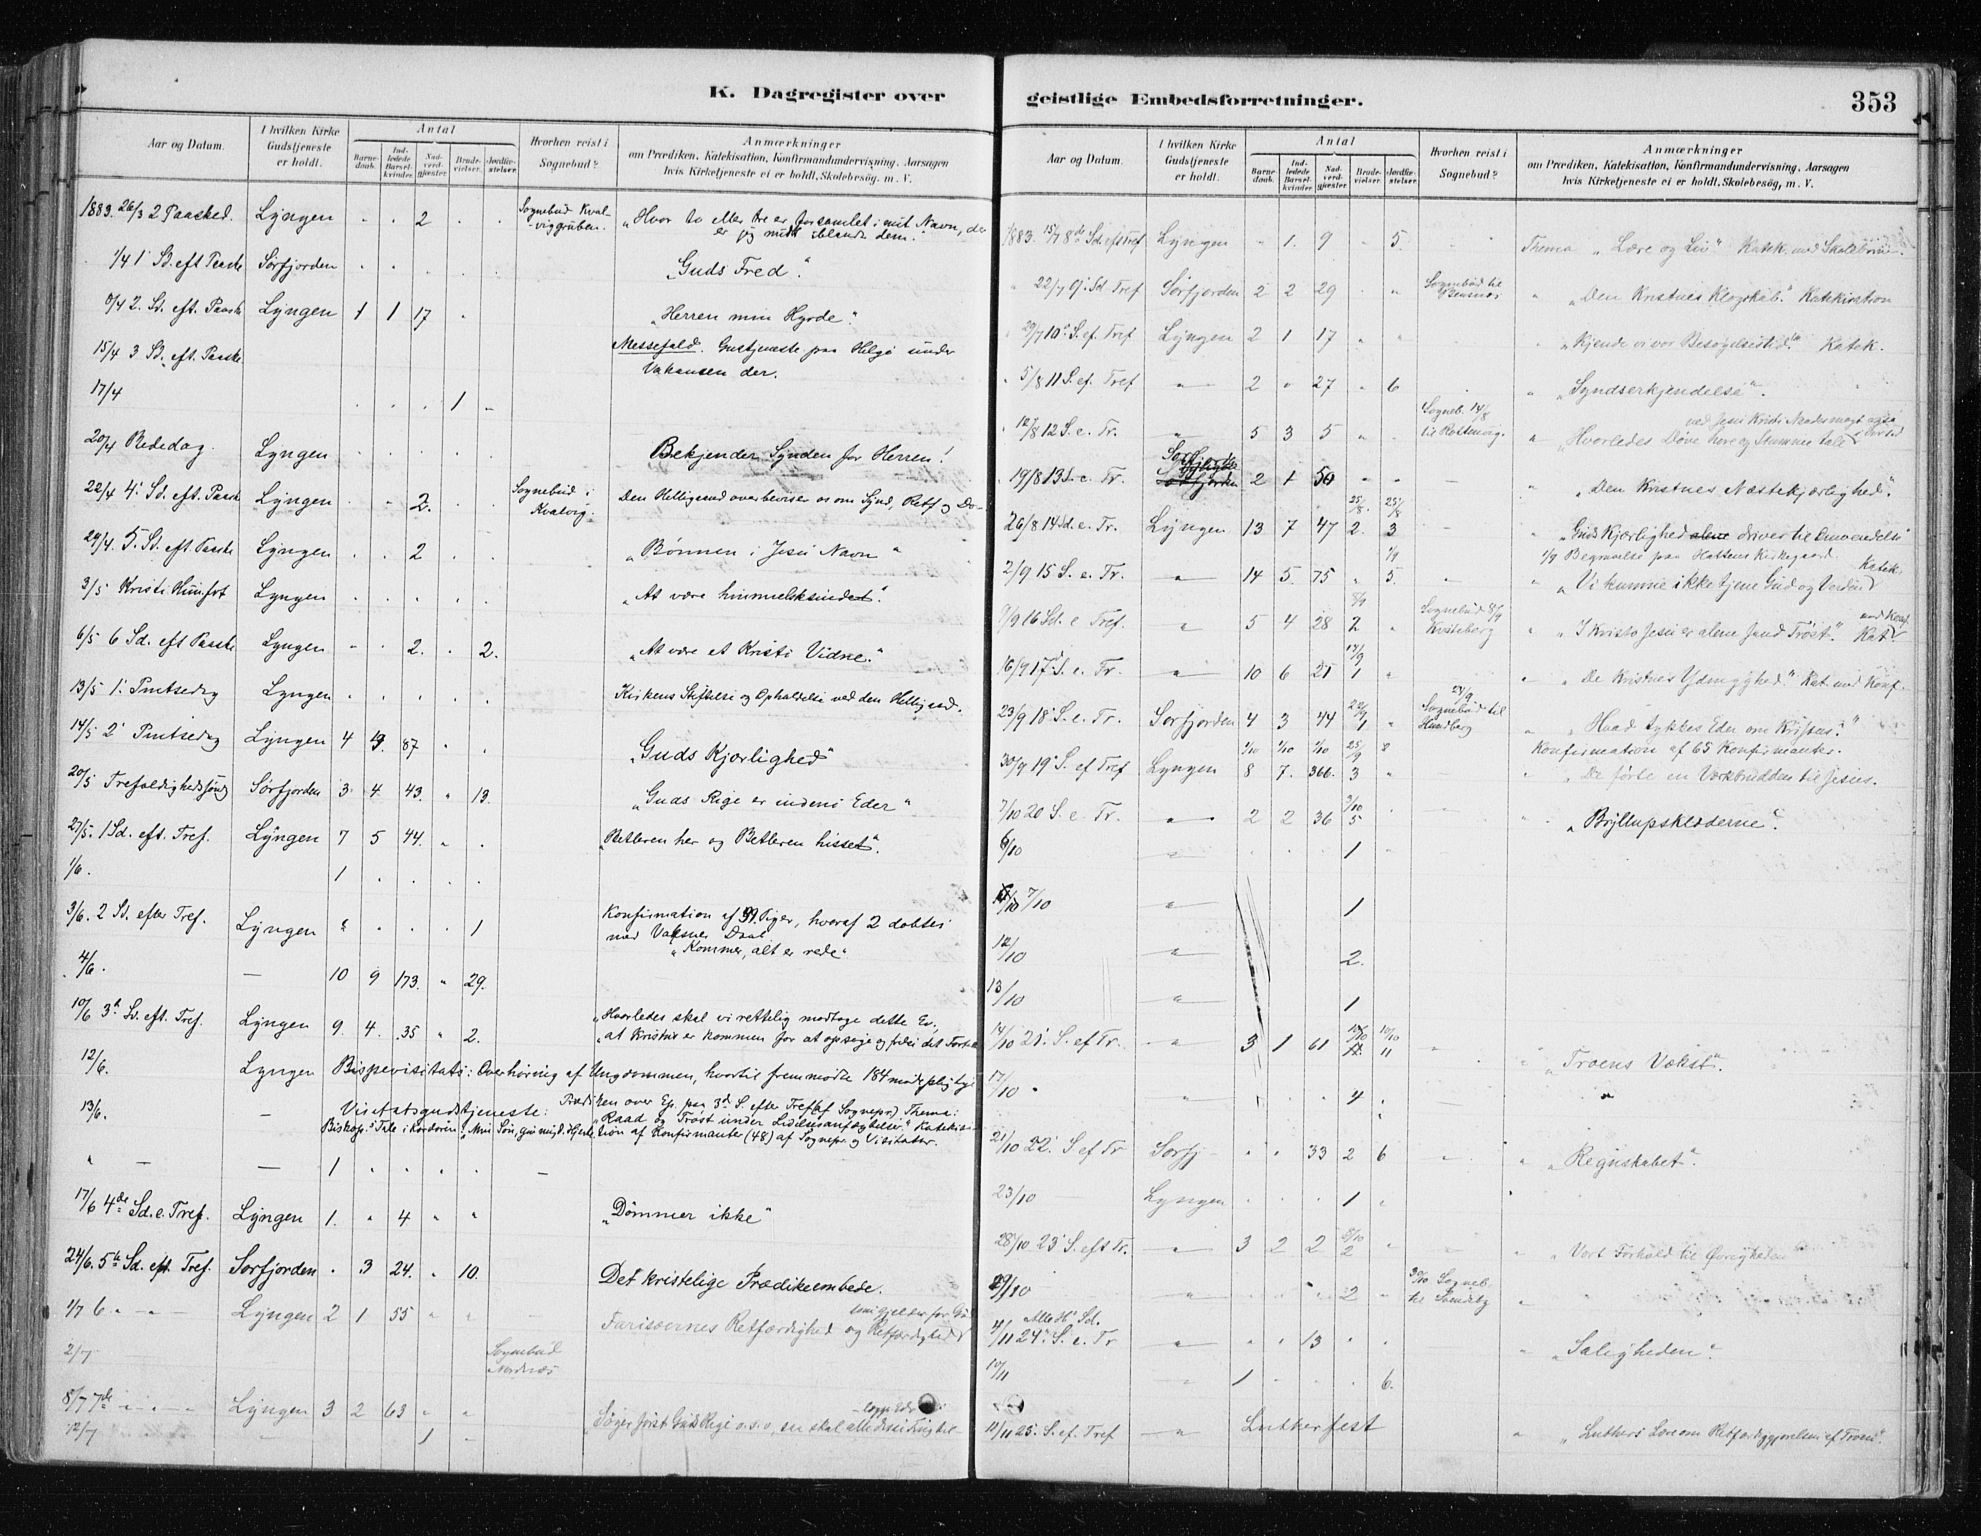 K. Dagregister over
Aar og Datum.
I hvilken Kirke Gudstjeneste er holdt.
Antal
Barnedaab.
Indledede Barselkvinder.
Nadverdgjæster.
Brudevielser.
Jordfæstelser.
Hvorhen reist i Sognebud?
Anmærkninger
om Prædiken, Katekisation, Konfirmandundervisning, Aarsagen
hvis Kirketjeneste ei er holdt, Skolebesøg, m. V.
1883. 26/3 2 Paasked. Lyngen " " 2 " " Sognebud Kvalviggruben. "Hvor to eller tre er forsamlet i mit Navn, der
er jeg midt iblandt dem."
1/4 1 Sd. eft Paaske Sørfjorden " " " " " "Guds Fred".
8/4 2. Sd. eft. Paaske Lyngen 1 1 17 " "Herren min Hyrde".
15/4 3 Sd. eft. Paaske Messefald. Gustjeneste paa Helgö under
Vakansen der.
17/4 " " " 1 "
20/4 Bededag. Lyngen " " " " " Bekjender Synden for Herren!
22/4 4. Sd. eft. Paaske Lyngen " " 2. " " Sognebud i Kvalvig. Den Helligaand overbeviser os om Synd, Retf og Do-
29/4. 5. Sd. eft Paaske Lyngen " " 2 " " "Bönnen i Jesu Navn"
3/5 Kristi Himfrt Lyngen " " " " " "At være himmelsksindet".
6/5 6 Sd. eft Paaske Lyngen " " 2. " 2. "At være et Kristi Vidne."
13/5 1. Pintsedag Lyngen " " " " " Kirkens Stiftelse og Opholdelse ved den Helligaand.
14/5 2 Pintsedag Lyngen 4 87 " " "Guds Kjærlighed"
20/5 Trefoldighedsönd Sørfjorden 3 4 43. " 13. "Guds Rige er indeni Eder"
27/5. 1 Sd. eft. Tref. Lyngen 7 5 44. " " "Betleren her og Betleren hisset".
1/6. 1 " " " "
3/6. 2 Sd. efter Tref. Lyngen " " " " 1 Konfirmation af Piger, hvoraf 2 döbtes
med Voksnes Daab
"Kommer, alt er rede"
4/6. — 10 9 173. " 29.
10/6 3 Sd. eft. Tref. Lyngen 9. 4. 35 " 2. "Hvorledes skal vi rettelig modtage dette Ev.,
"at Kristus er kommen for at opsöge og frelse det Fortabte
12/6. Lyngen Bispevisitats: Overhöring af Ungdommen, hvortil fremmödte 184 mödepligtige
13/6. — Visitatsgudstjeneste: Prædiken over Ep. paa 3d S. efter Tref (af Sognepr) Thema:
"Raad og Tröst under Lidelsesanfægtelser." Katekisa-
Biskop.s Tale i Kordören: "Min Sön, giv mig d. Hjerte tion af Konfirmanter (48) af Sognepr. og Visitator.
" — — 1 " " " " —
17/6 4de Sd. e. Tref. Lyngen 1. " 4 " " "Dömmer ikke"
24/6. 5 Sd. eft Tref. Sørfjorden " 3 24. " 10. Det kristelige Prædikeembede.
1/7 6 " " — Lyngen 2 1 55 " " — Farisæernes Retfærdighed og Retfærdighed
som gjelder for Gud
2/7 Sognebud Nordnæs
8/7 7de " " " Lyngen 3 2 63 " " "Söger först Guds Rige o.s.v, saa skal alle disse Ting til-
lægges Eder
12/7 — 1 —
geistlige Embedsforretninger.
353
Aar og Datum.
I hvilken Kirke Gudstjeneste er holdt.
Antal
Barnedaab.
Indledede Barselkvinder.
Nadverdgjæster.
Brudevielser.
Jordfæstelser.
Hvorhen reist i Sognebud?
Anmærkninger
om Prædiken, Katekisation, Konfirmandundervisning, Aarsagen
hvis Kirketjeneste ei er holdt, Skolebesøg, m. V.
1883. 15/7 8de Sd. eft Tref Lyngen " 1. 9 " 5. " Thema "Lære og Liv". Katek. med Skolebörn.
" 22/7 9 Sd Tref Sørfjorden 2 2 29 " " Sognebud til " "Den Kristnes Klogskab." Katekisation
29/7 10 S. ef. Tref Lyngen 2 1 17 " " " "Kjende vi vor Besögelsestid?" Katek.
5/8 11 S. ef. Tref " 2 " 27 " 6 " "Syndserkjendelse".
12/8 12 S. e. Tr. " 5 3 5 " " Sogneb. 14/8 til Rottenvig. " "Hvorledes Döve höre og Stumme tale
ved Jesu Kristi Naadesmagt
19/8 13 Sd. e. Tr. Sørfjorden 2 1 50 " " — " "Den Kristnes Næstekjærlighed".
26/8 14 Sd. e. Tr. Lyngen 13 7 47 25/8. 2. 25/8 3 — "Guds Kjærlighed alene driver til Omvendelse"
1/9 Begravelse paa Hattens Kirkegaard.
2/9 15 S. e. Tr. " 14 5. 75 " 1/9 5. " " Vi kunne ikke tjene Gud og Verden Katek.
9/9 16 Sd. e Tref. " 5 4 28 8/9 2 " Sognebud 8/9 Kviteberg " "I Kristo Jesu er alene sand Tröst". Kat. med Konf.
16/9 17 S. e. Tr. " 10 6 21 17/9 1 " " "De Kristnes Ydmyghed." Kat. med Konf.
23/9 18 S. e. Tr. Sørfjorden 4 3 44 22/9 1 " 23/9 Sognebud til Hundberg " "Hvad tykkes Eder om Kristus?"
Konfirmation af 65 Konfirmanter.
30/9 19 S. ef Tref Lyngen 8 7. 366. 25/9 3 " — " "De förte en Værkbrudden til Jesus.
7/10 20 S. e. Tr. " 2 2 36 3/10 5 " " " "Bryllupsklæderne".
6/10 " " " " 1 "
7/10 " 1
12/10 " 2.
13/10 " 1
14/10 21. S. ef Tr. " 3 1 61 10/10 11 " "Troens Vækst".
17/10 " 4 "
21/10 22. S ef Tr Sørfj — " " 33 2 6 " " "Regnskabet".
23/10 Lyngen " " " 1 "
28/10 23 S. eft Tr. " 3 2 2 2 " — " "Vort Forhold til Övrigheden"
29/10 " " " " 2 " 30/10 Sogneb. til "
Alle H. Sd.
4/11 24. S. e. Tr " " " 13 " " " "Saligheden".
10/11 " 1 " " " 6.
11/11 25. S. ef. Tref " Lutherfest " "Luthers Lære om Retfærdiggjørelsen af Troen".